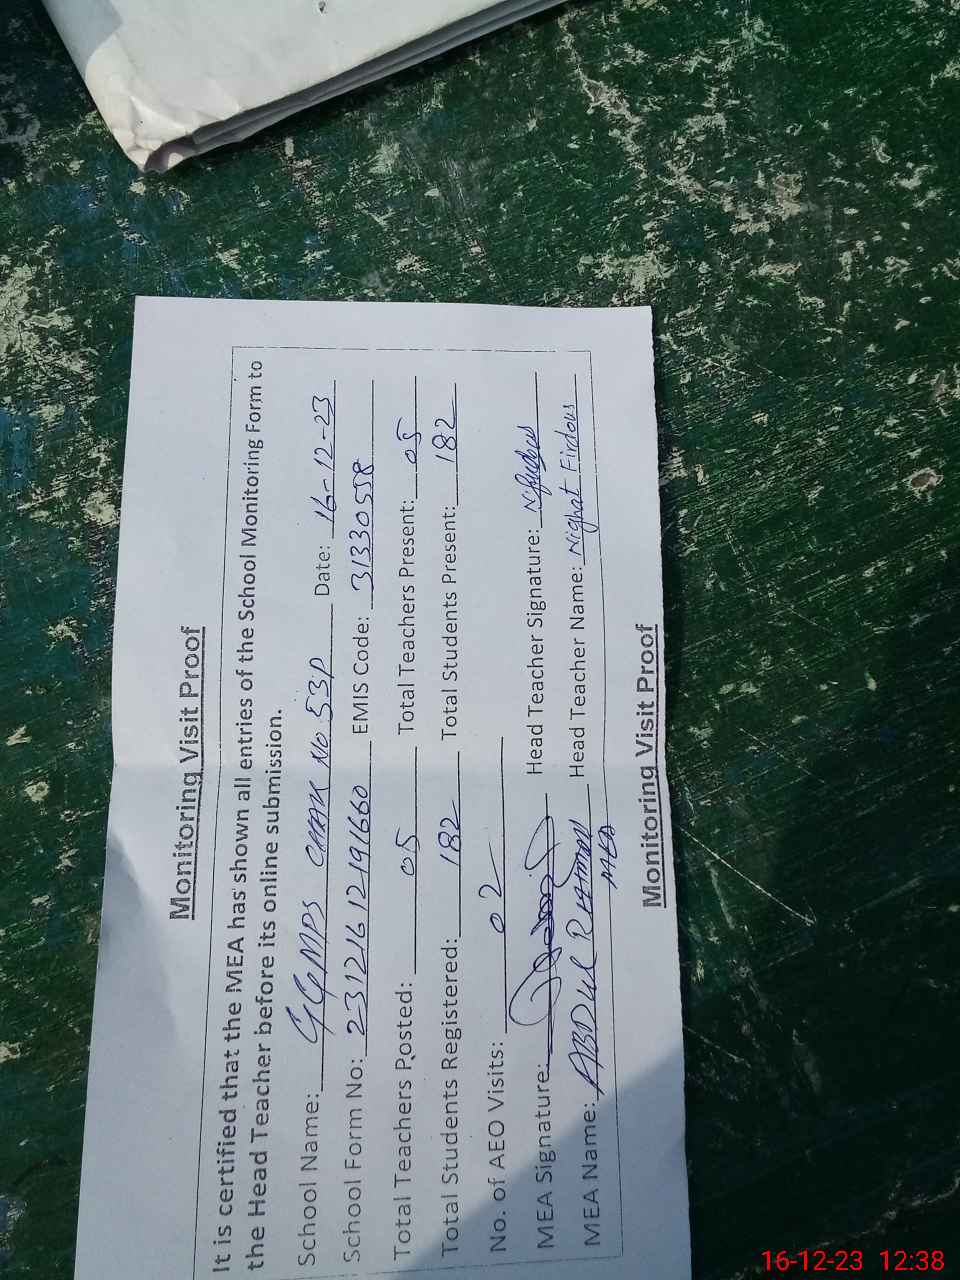 Monitoring Visit Proof
It is certified that the MEA has shown all entries of the School Monitoring Form to
the Head Teacher before its online submission.
School Name: GGMPS CHAK No 53P Date: 16-12-23
School Form No: 23121612191660 EMIS Code: 31330558
Total Teachers Posted: 05 Total Teachers Present: 05
Total Students Registered: 182 Total Students Present: 182
No. of AEO Visits: 02
MEA Signature: Head Teacher Signature: N.firdous
MEA Name: ABDUL REHMAN Head Teacher Name: Nighat Firdous
MEA
Monitoring Visit Proof
16-12-23 12:38